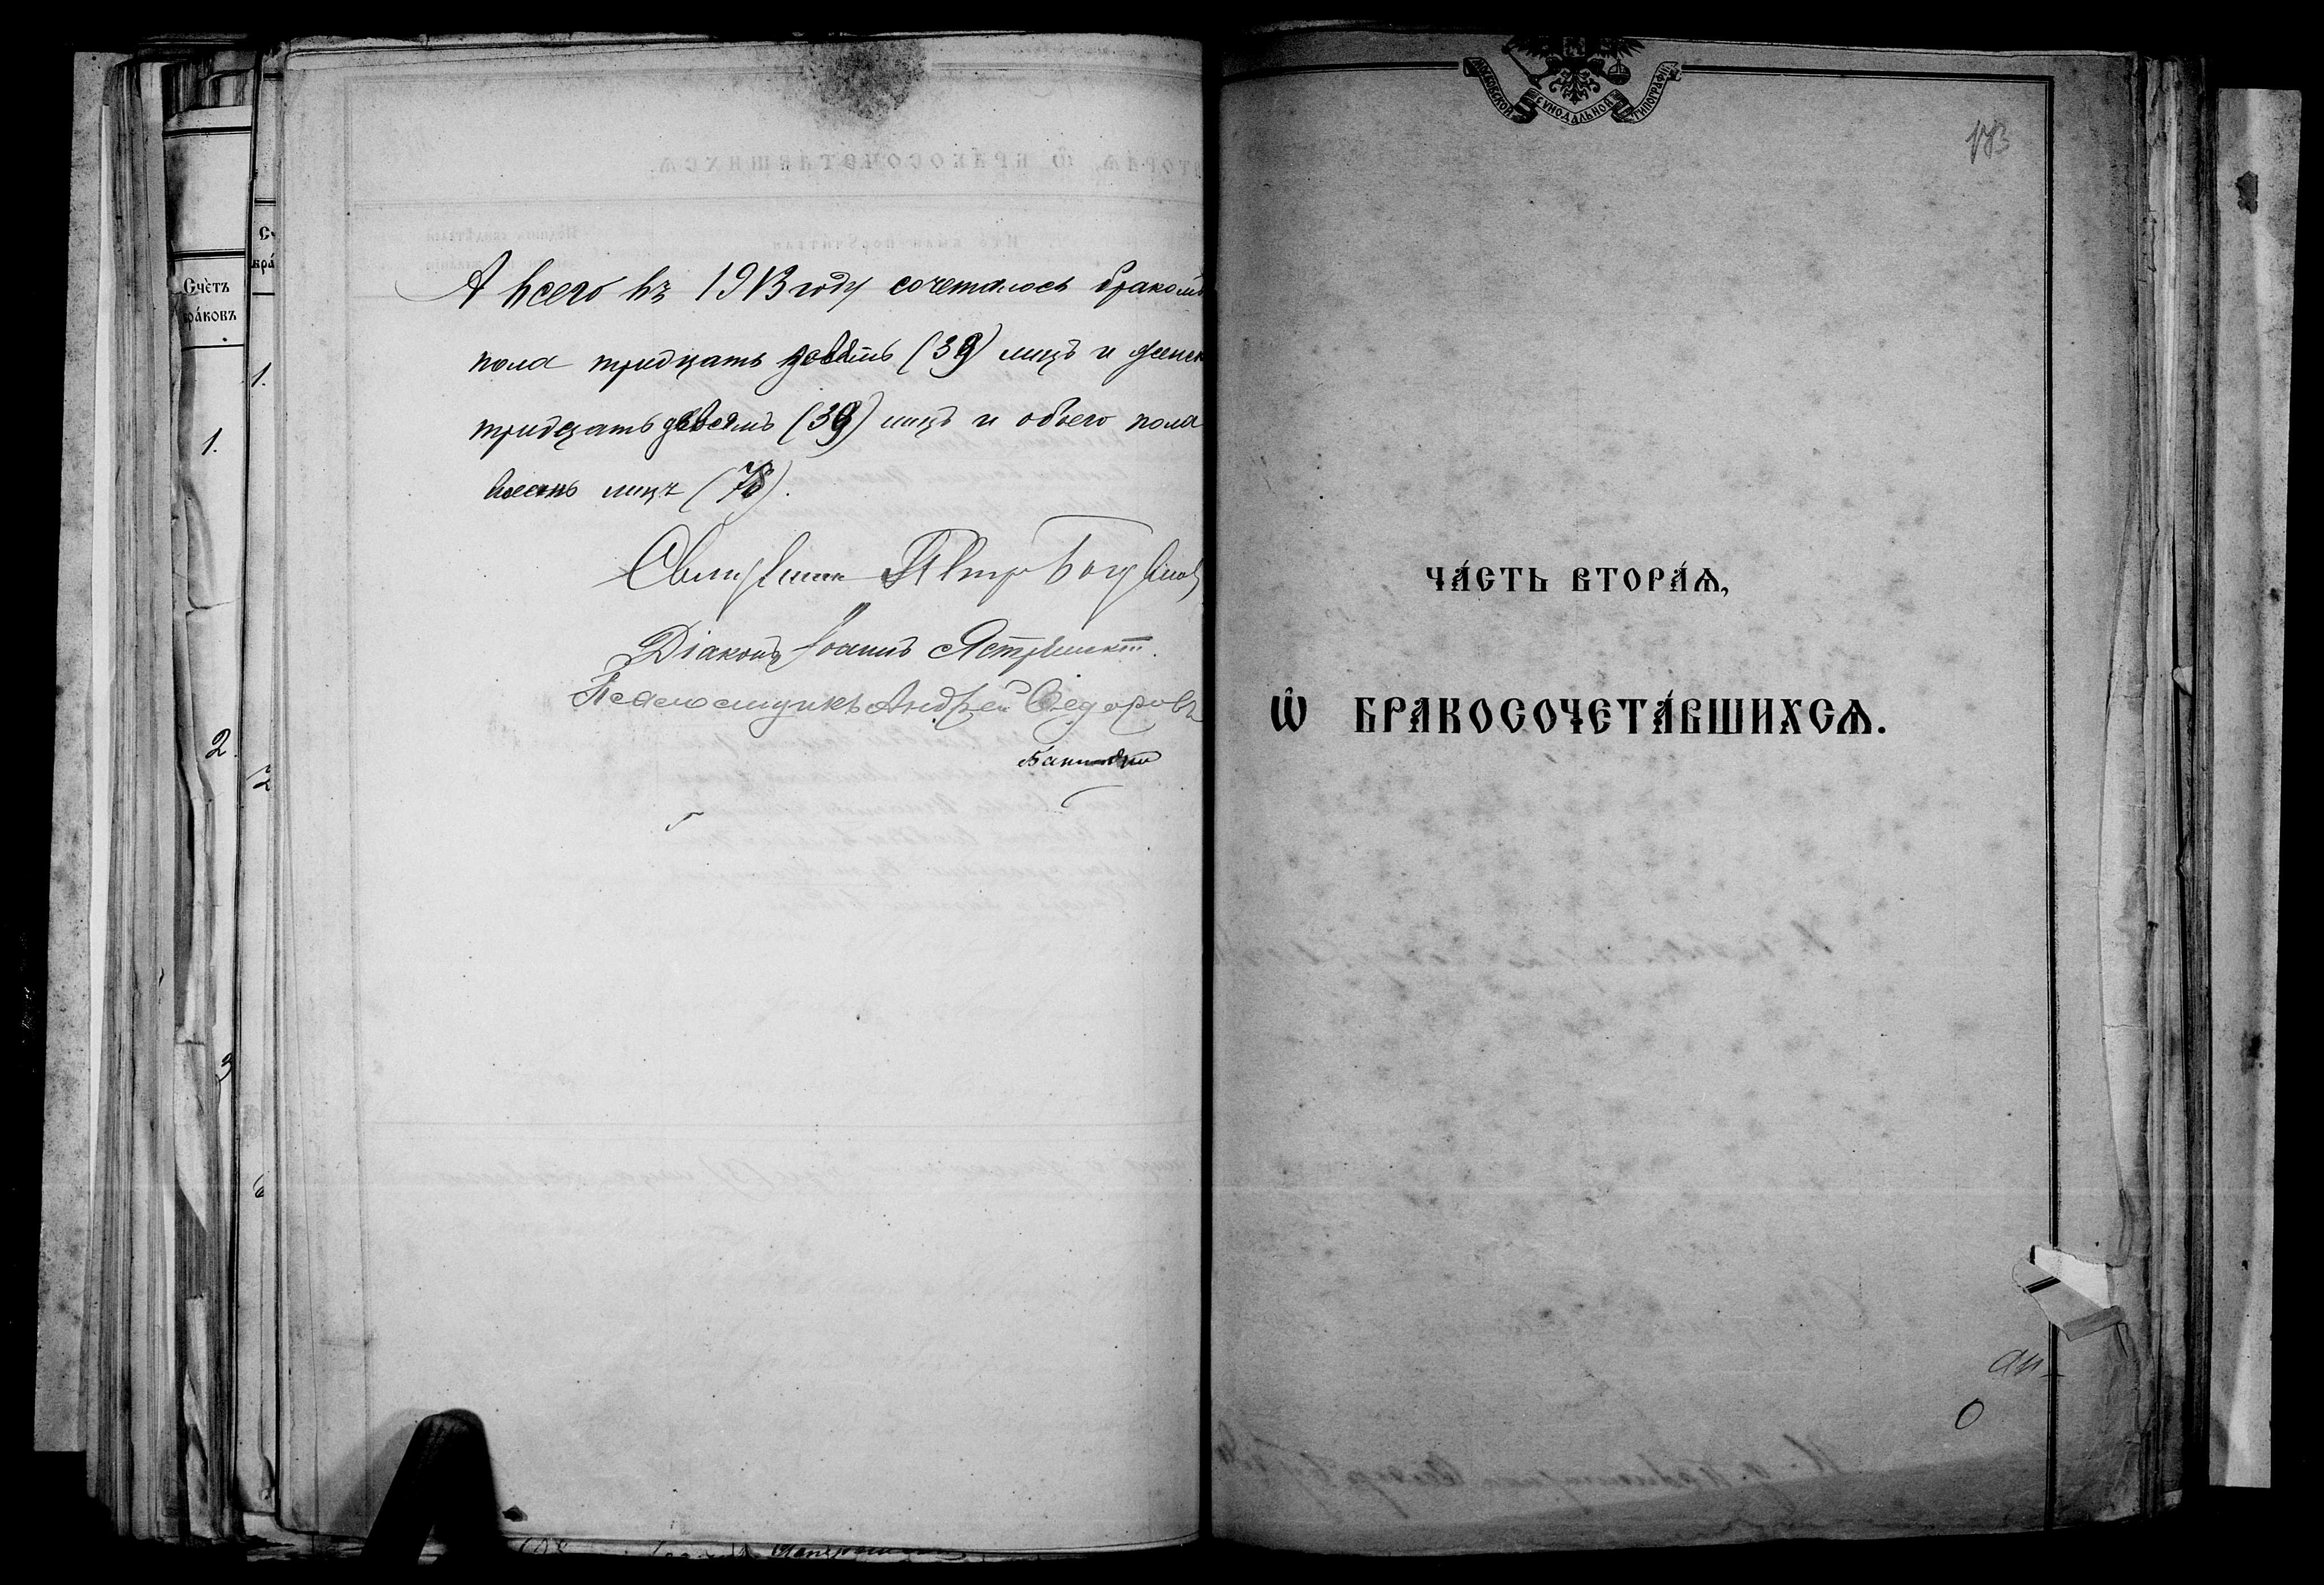 Счетъ
браковъ
1.
2.
3
1.
2
А всего въ 1913 году сочеталось бракомъ
пола тридцать девять (39) лицъ и женск
тридцать девять (39) лицъ и обоего пола
восемь лицъ (78).
Священникъ Петръ
Діаконъ Іоаннъ
Псаломщикъ Андрей Ѳедоровъ
МОСКОВСКОЙ СѴНОДАЛЬНОЙ ТИПОГРАФІИ
173
ЧА́СТЬ ВТОРА́Ѧ,
Ѡ БРАКОСОЧЕТА́ВШИХСѦ.